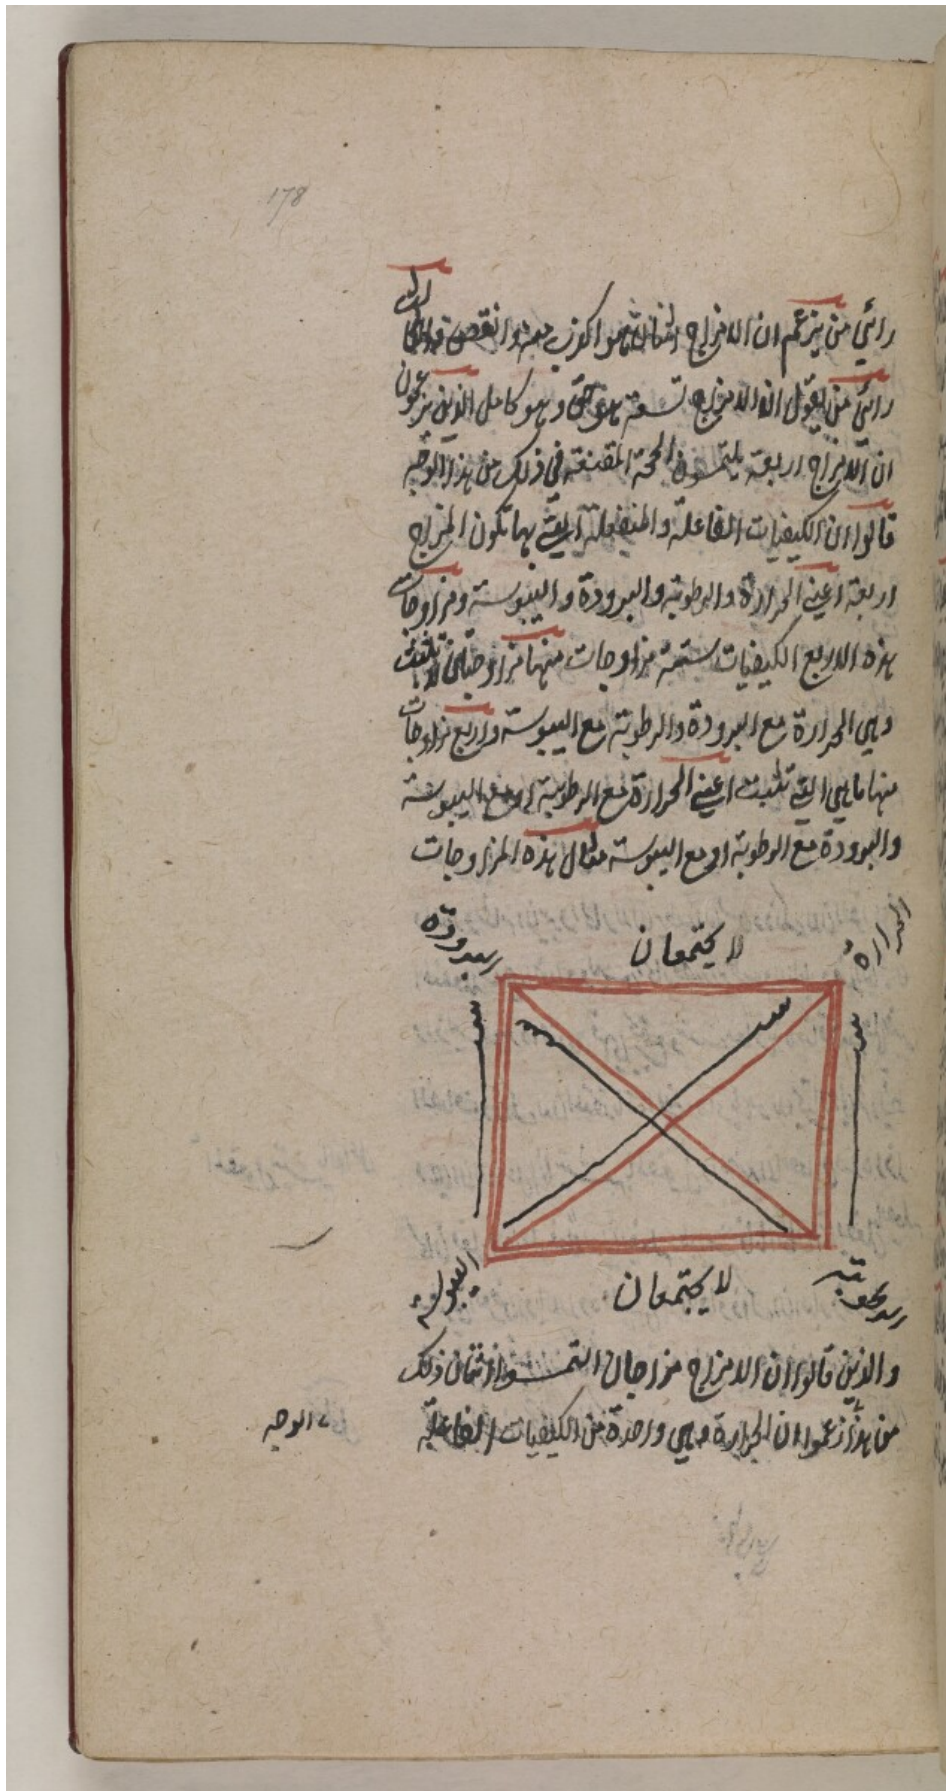 178
رائي من يزعم ان الامزاج ثمان هو اكذب منه وانقص
رائي من يقول ان الامزاج تسعة هو حق وهو كامل الذين يزعمون
ان الامزاج اربعة يلتمسون الحجة المقنعة في ذلك من هذا الوجه
قالوا ان الكيفيات الفاعلة والمنفعلة التي بها تكون المزاج
اربعة اعني الحرارة والرطوبة والبرودة واليبوسة ومزاوجات
هذه الاربع الكيفيات ستة مزاوجات منها مزاوجتان لا تثبت
وهي الحرارة مع البرودة والرطوبة مع اليبوسة واربع مزاوجات
منها ما هي التي تثبت اعني الحرارة مع الرطوبة او مع اليبوسة
والبرودة مع الرطوبة او مع اليبوسة مثال هذه المزاوجات
الحرارة
لا يجتمعان
البرودة
الرطوبة
لا يجتمعان
اليبوسة
والذين قالوا ان الامزاج مزاجان التمسوا اثبات ذلك
من هذا زعموا ان الحرارة وهي واحدة من الكيفيات الفاعلة
الوجه